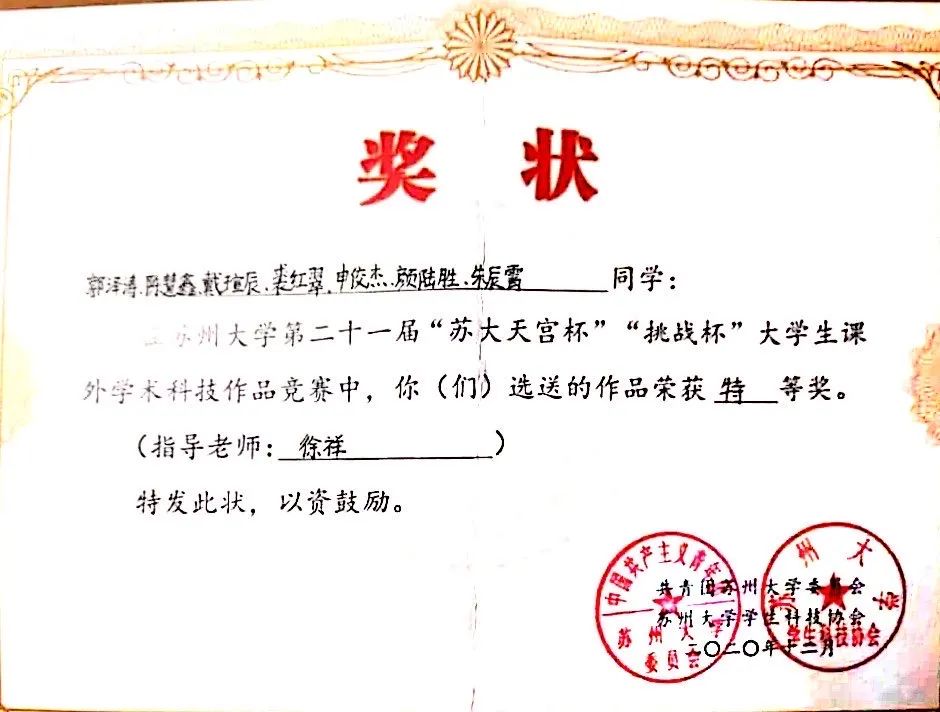 奖状
郭泽涛、冉慧鑫、戴瑄辰、裘红翠、申佼杰、顾陆胜、朱辰霄同学：
在苏州大学第二十一届“苏大天宫杯”“挑战杯”大学生课
外学术科技作品竞赛中，你（们）选送的作品荣获 特 等奖。
（指导老师：徐祥）
特发此状，以资鼓励。
共青团苏州大学委员会
苏州大学学生科技协会
二〇二〇年十二月
中国共产主义青年团
苏州大学
委员会
苏州大学
学生科技协会